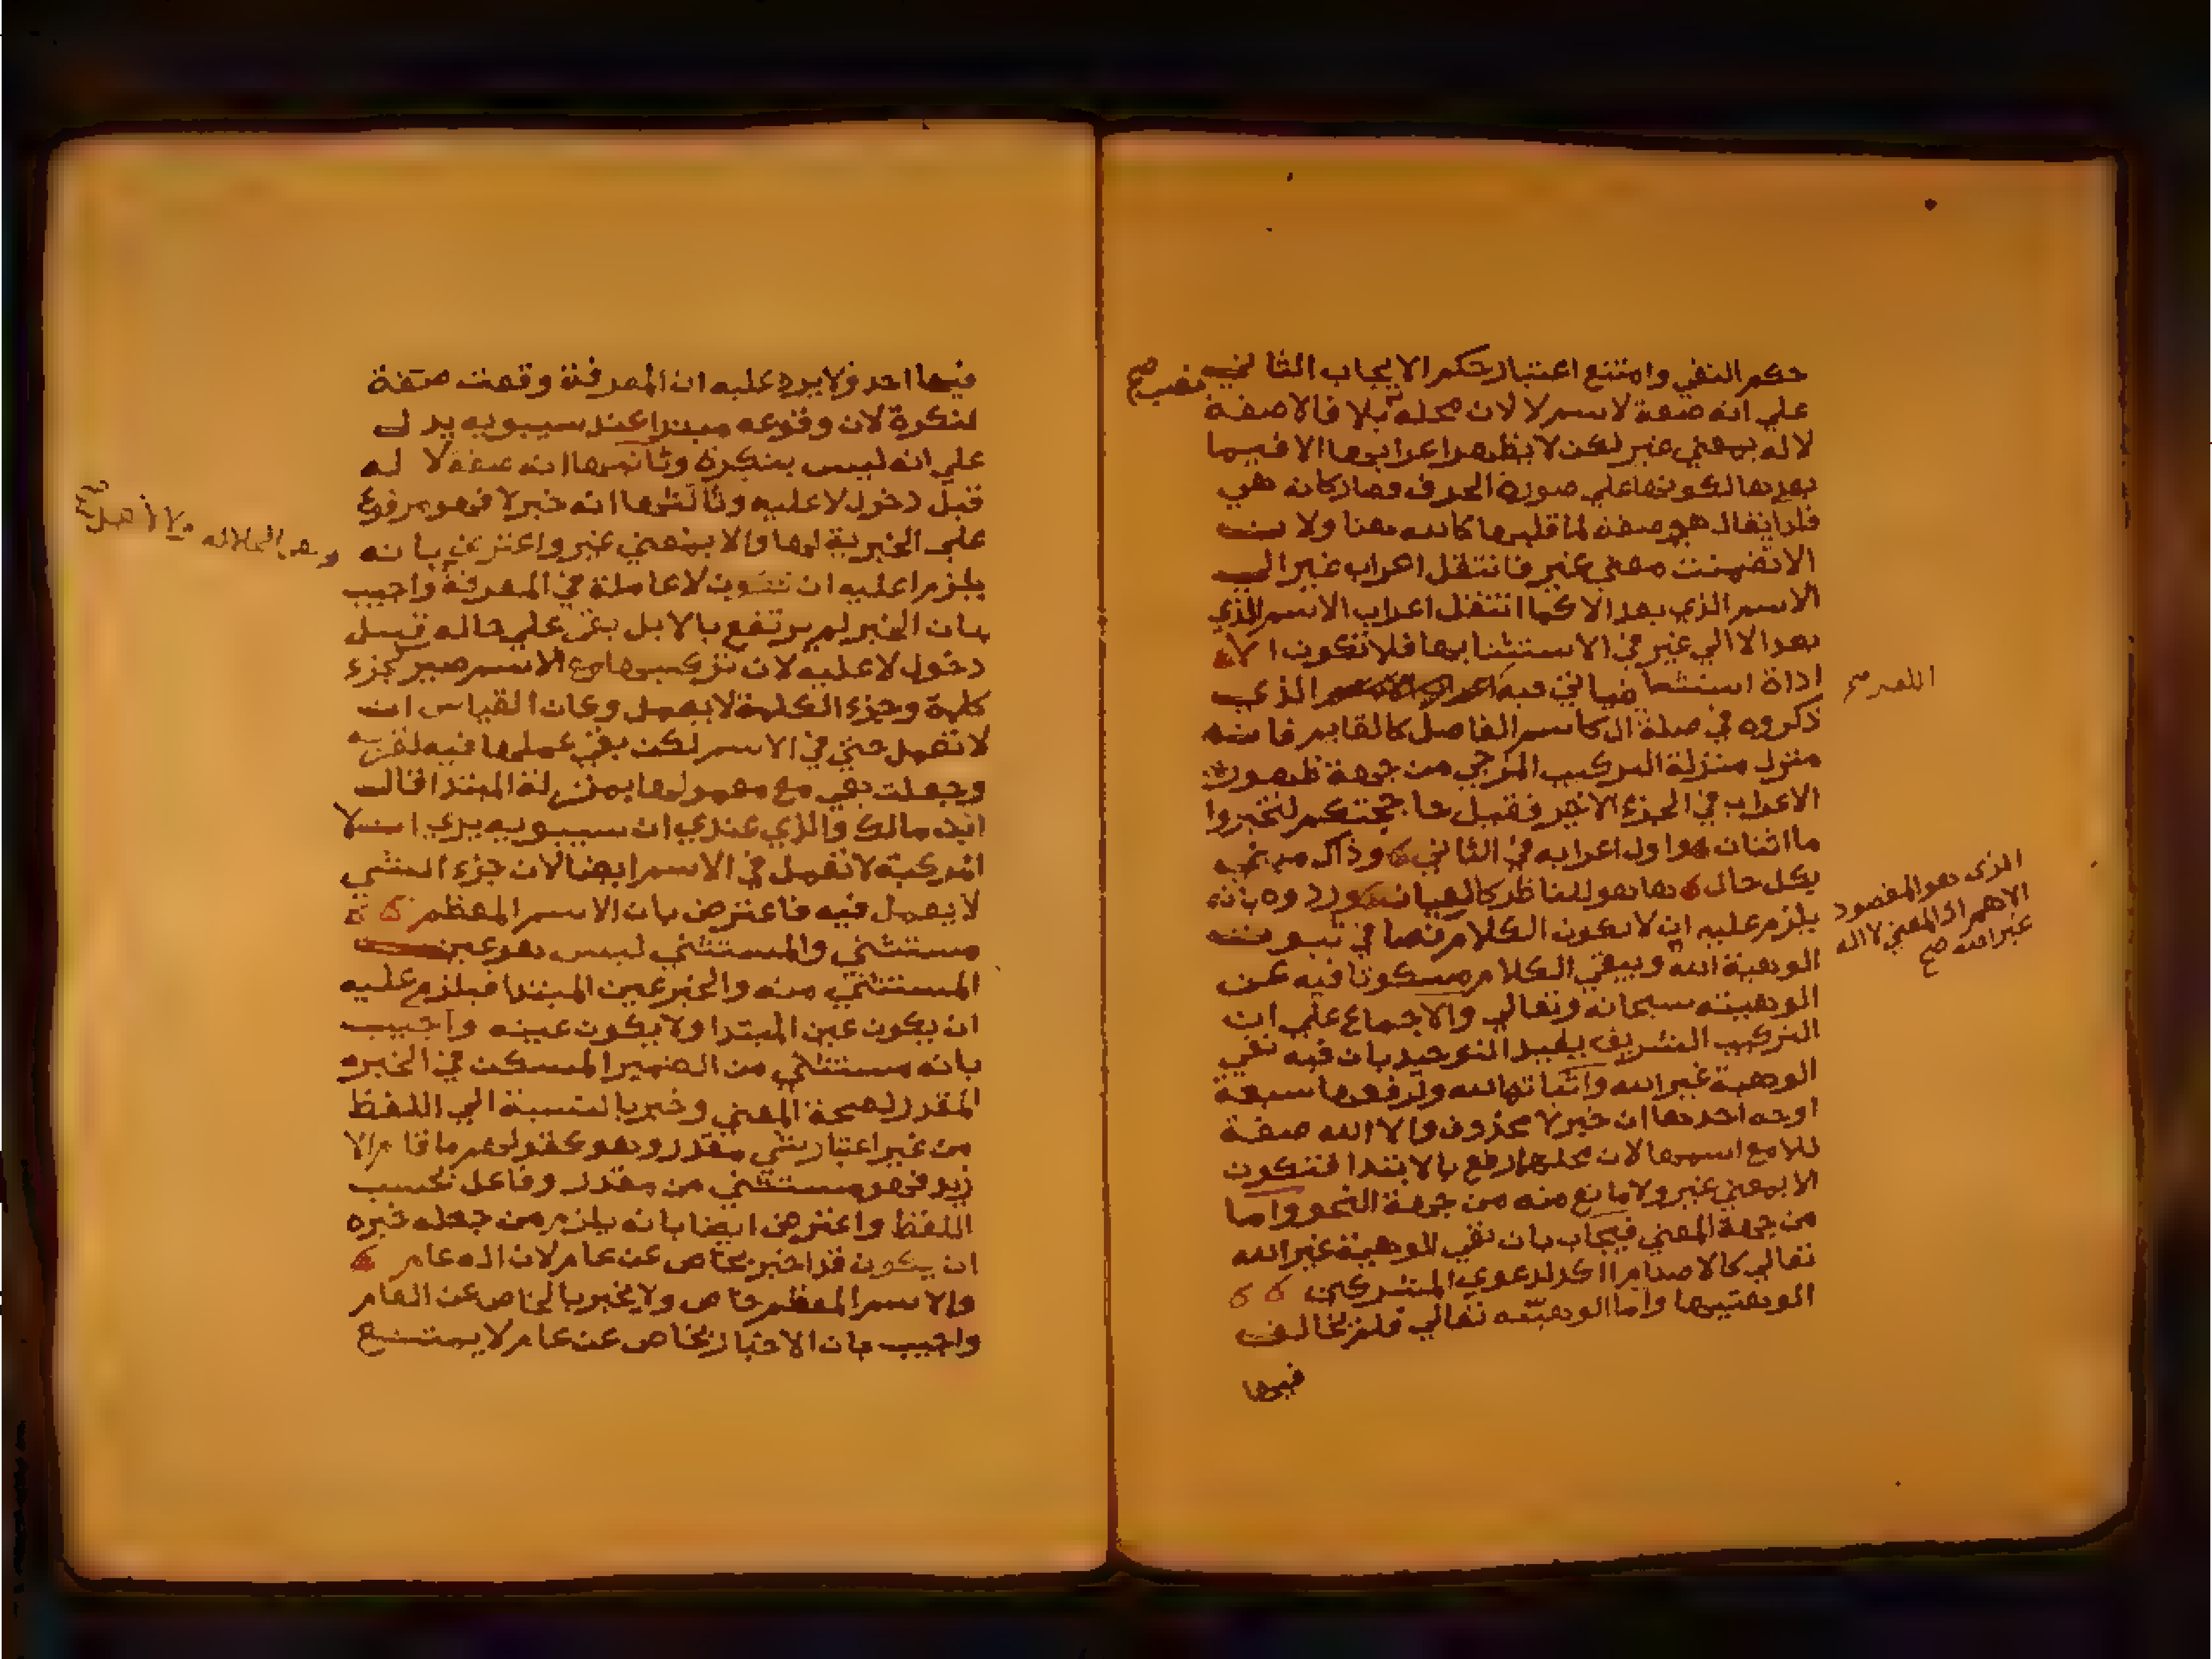 حكم النفي وامتنع اعتبار حكم الايجاب الثاني
نصب صح
علي انه صفة لاسم لا لان محله بلا فالا صفة
لاله بمعني غير لكن لا يظهر اعرابها الا فيما
بعدها لكونها علي صورة الحرف فصار كانه هي
فلذا يقال هو صفة لما قبلها كانه هنا ولانه
الا تضمنت معني غير فانتقل اعراب غير الي
الاسم الذي بعد الا كما انتقل اعراب الاسم الذي
بعد الا الي غير في الاستثنا بها فلا تكون الا
اداة استثنا فياتي فيه الذي
اللغز صح
ذكروه في صلة ال كاسم الفاعل كالقايم فانه
منزل منزلة التركيب المزجي من جهة ظهور
الاعراب في الجزء الاخير فقيل حاجتكم لتخبروا
ما اثنان هوا ول اعرابه في الثاني وذاك مبني
بكل حال ها هو للناظر كالعيان وردوه بانه
يلزم عليه ان لا يكون الكلام نصا في ثبوت
الذي هو المقصود
الاهم اذ المعني لا اله
غير الله صح
الوهية الله ويبقي الكلام مسكوتا فيه عن
الوهيته سبحانه وتعالي والاجماع علي ان
التركيب الشريف يفيد التوحيد بان فيه نفي
الوهية غير الله واثباتها لله ولرفعها سبعة
اوجه احدها ان خبر لا محذوف والا الله صفة
للا مع اسمها لان محلها رفع بالابتدا فتكون
الا بمعني غير ولا مانع منه من جهة النحو واما
من جهة المعني فيجاب بان نفي الوهية غير الله
تعالي كالاصنام اكد لدعوي المشركين
الوهيتها واما الوهيته تعالي فلم يخالف
فيها
فيها احد ولا يرد عليه ان المعرفة وقعت صفة
لنكرة لان وقوعه مبتدا عند سيبويه يدل
علي انه ليس بنكرة وثانيها انه صفة لا له
قبل دخول لا عليه وثالثها انه خبر لا فهو مرفوع
علي الخبرية لها والا بمعني غير واعترض بانه
يلزم عليه ان تكون لا عاملة في المعرفة واجيب
بان الخبر لم يرتفع بالا بل بقي علي حاله قبل
دخول لا عليه لان تركيبها مع الاسم صير كجزء
كلمة وجزء الكلمة لا يعمل وكان القياس ان
لا تعمل حتي في الاسم لكن بقي عملها فيه لقربه
وجعلت هي مع معمولها بمنزلة المبتدا قال
ابن مالك والذي عندي ان سيبويه يري ان لا
المركبة لا تعمل في الاسم ايضا لان جزء الشي
لا يعمل فيه فاعترض بان الاسم المعظم
مستثني والمستثني ليس هو عين
المستثني منه والخبر عين المبتدا فيلزم عليه
ان يكون عين المبتدا ولا يكون عينه واجيب
بانه مستثني من الضمير المسكن في الخبر
المقدر لصحة المعني وخبر بالنسبة الي اللفظ
من غير اعتبار شي مقدر وهو كقولهم ما قام الا
زيد فهو مستثني من مقدر وفاعل بحسب
اللفظ واعترض ايضا بانه يلزم من جعله خبره
ان يكون قد اخبر بخاص عن عام لان اله عام
والاسم المعظم خاص ولا يخبر بالخاص عن العام
واجيب بان الاخبار بخاص عن عام لا يمتنع